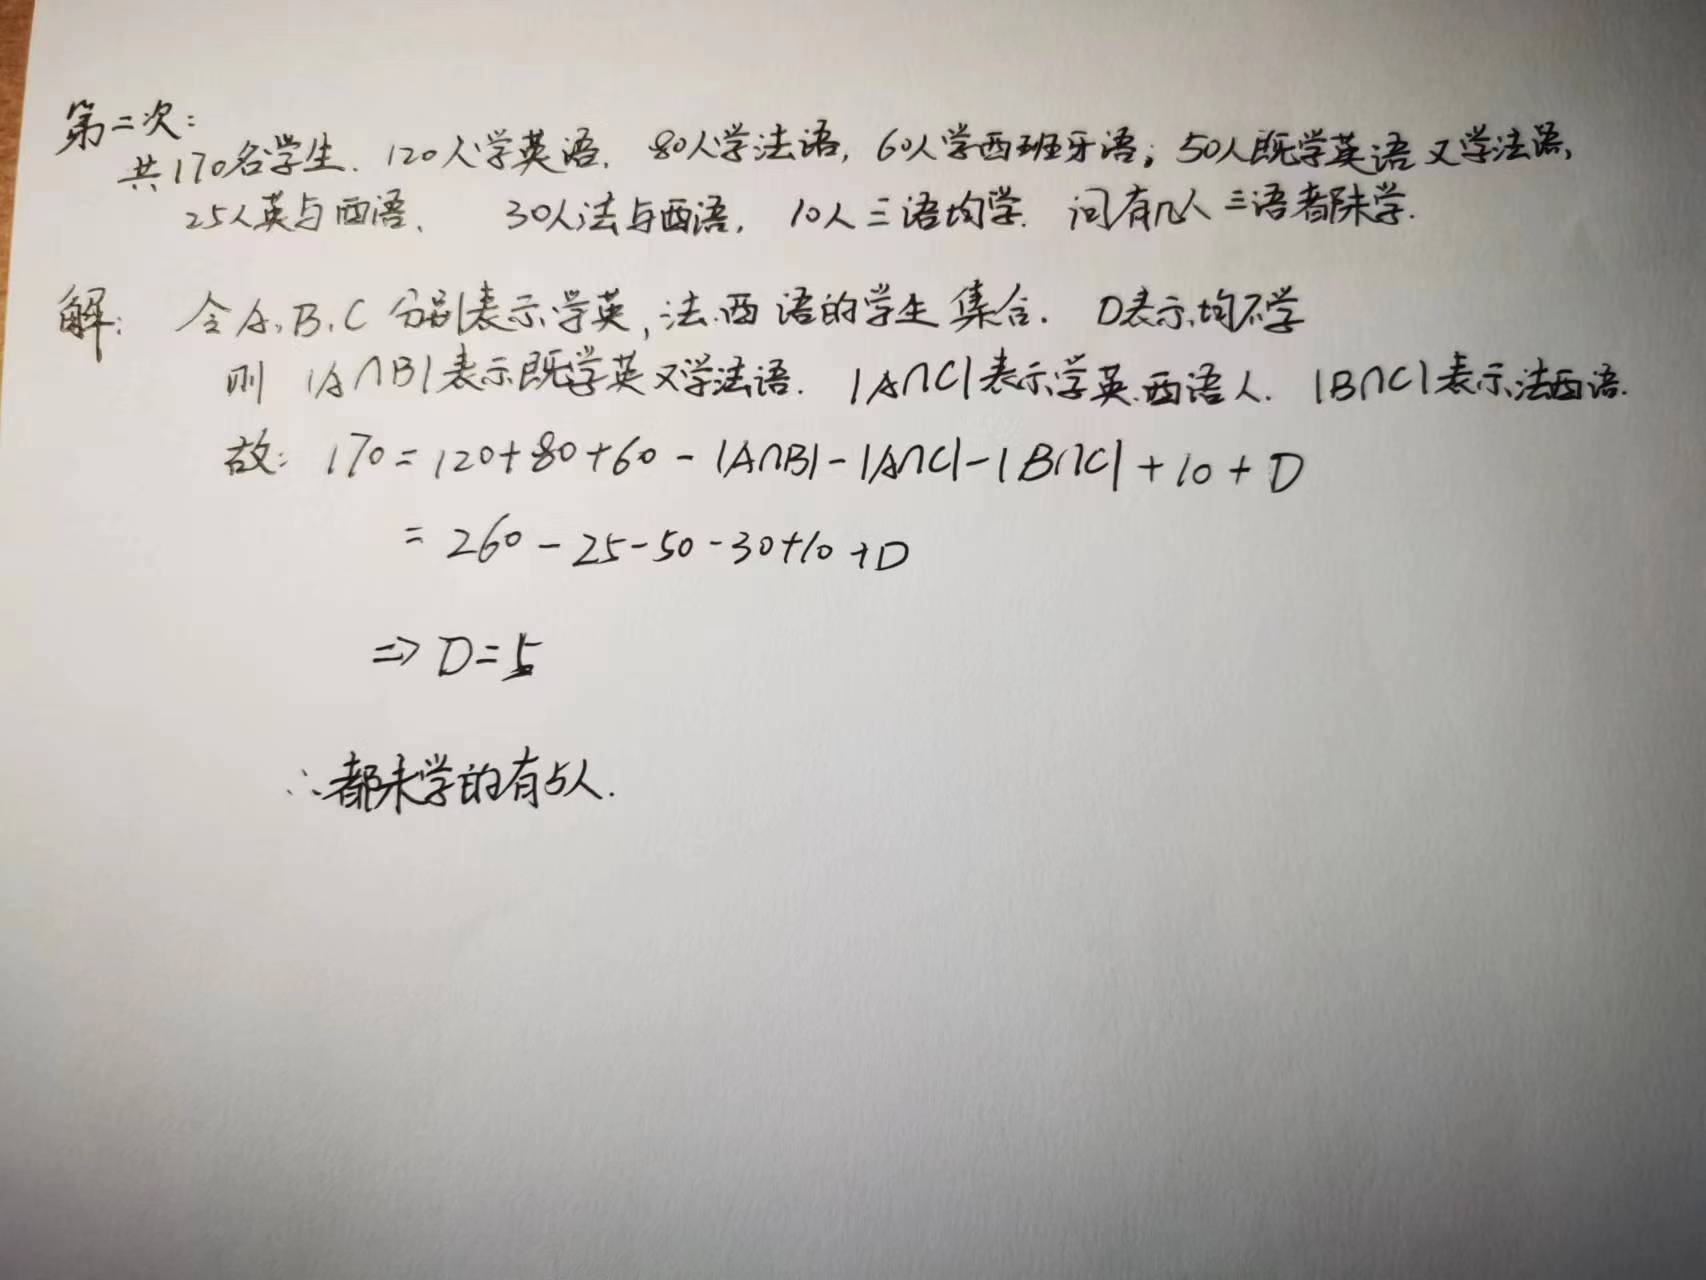 第二次:
共170名学生. 120人学英语. 80人学法语, 60人学西班牙语; 50人既学英语又学法语,
25人英与西语. 30人法与西语, 10人三语均学. 问有几人三语都未学.
解: 令A, B, C 分别表示学英, 法. 西语的学生集合. D表示均不学
则 |A∩B|表示既学英又学法语. |A∩C|表示学英.西语人. |B∩C|表示法西语.
故: 170=120+80+60-|A∩B|-|A∩C|-|B∩C|+10+D
=260-25-50-30+10+D
⇒D=5
∴都未学的有5人.